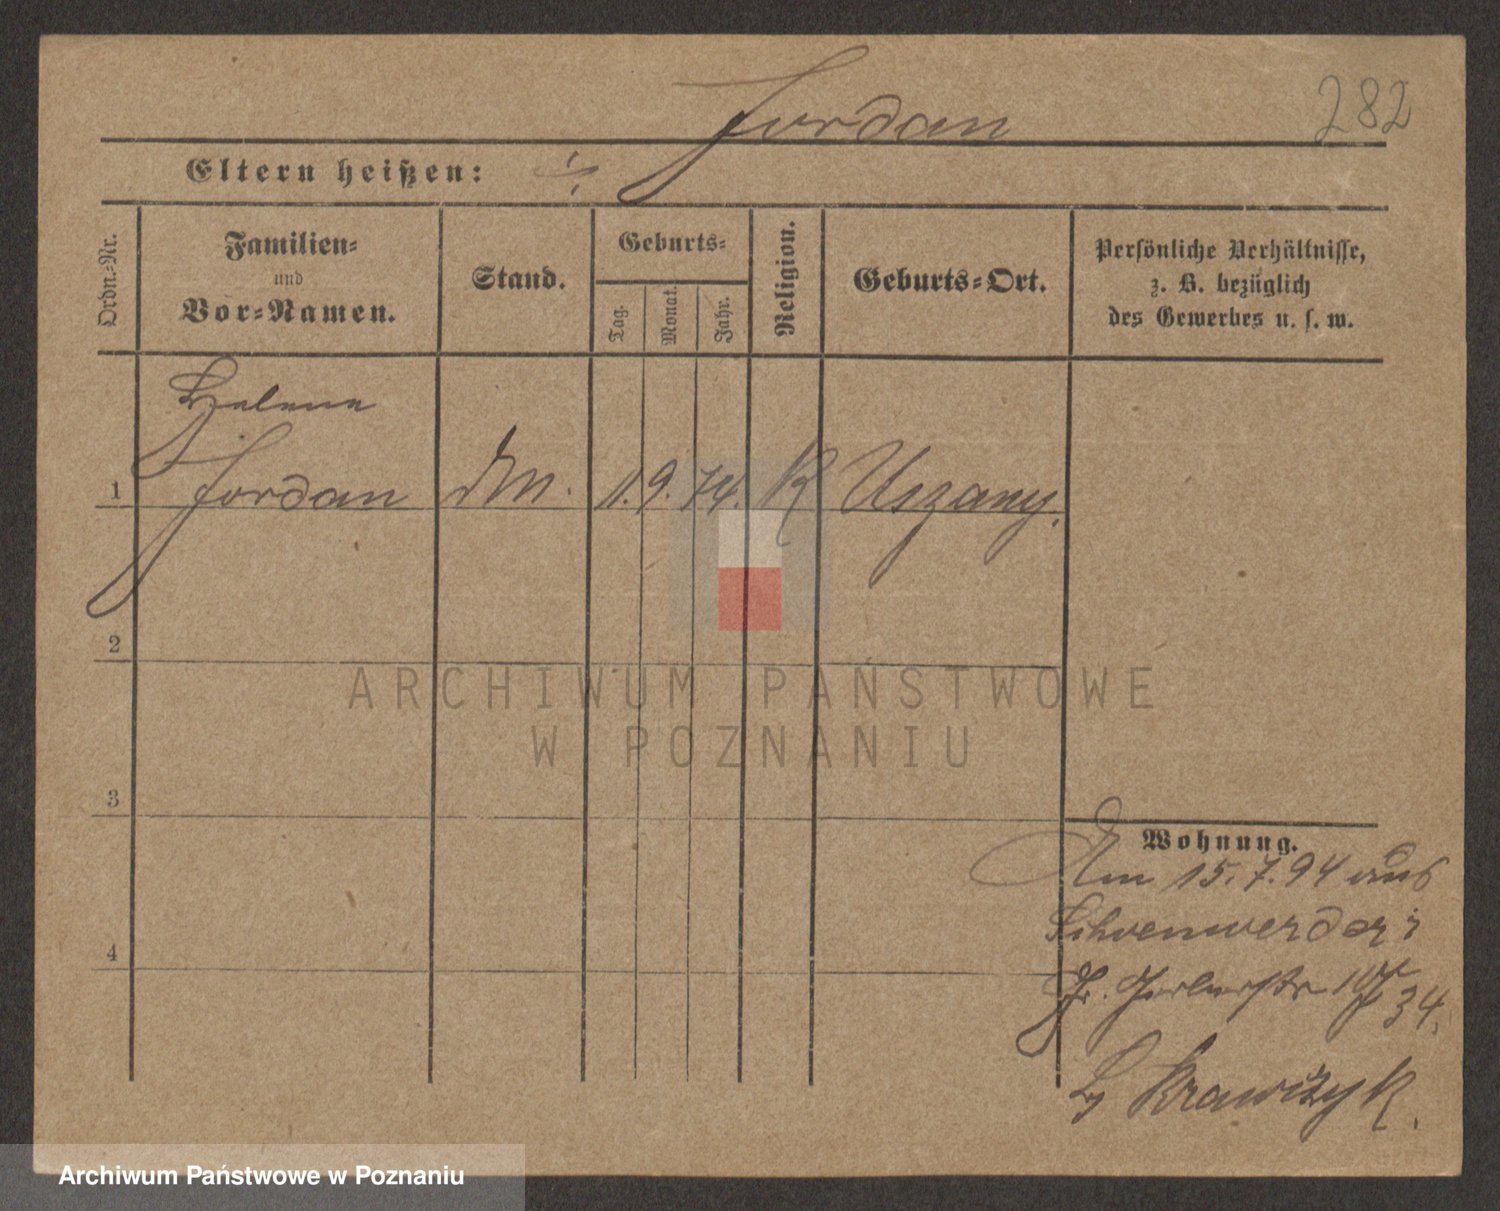 Jordan
282
Eltern heißen: ./.
Ordn.-Nr.
Familien-
und
Vor-Namen.
Stand.
Geburts-
Tag.
Monat.
Jahr.
Religion.
Geburts-Ort.
Persönliche Verhältnisse,
z. B. bezüglich
des Gewerbes u. s. w.
Helene
1 Jordan 1. 9. 74. K Uszany.
2
3
4
ARCHIWUM PAŃSTWOWE
W POZNANIU
Wohnung.
Am 15.7.94 aus
34.
Krawczyk.
Archiwum Państwowe w Poznaniu